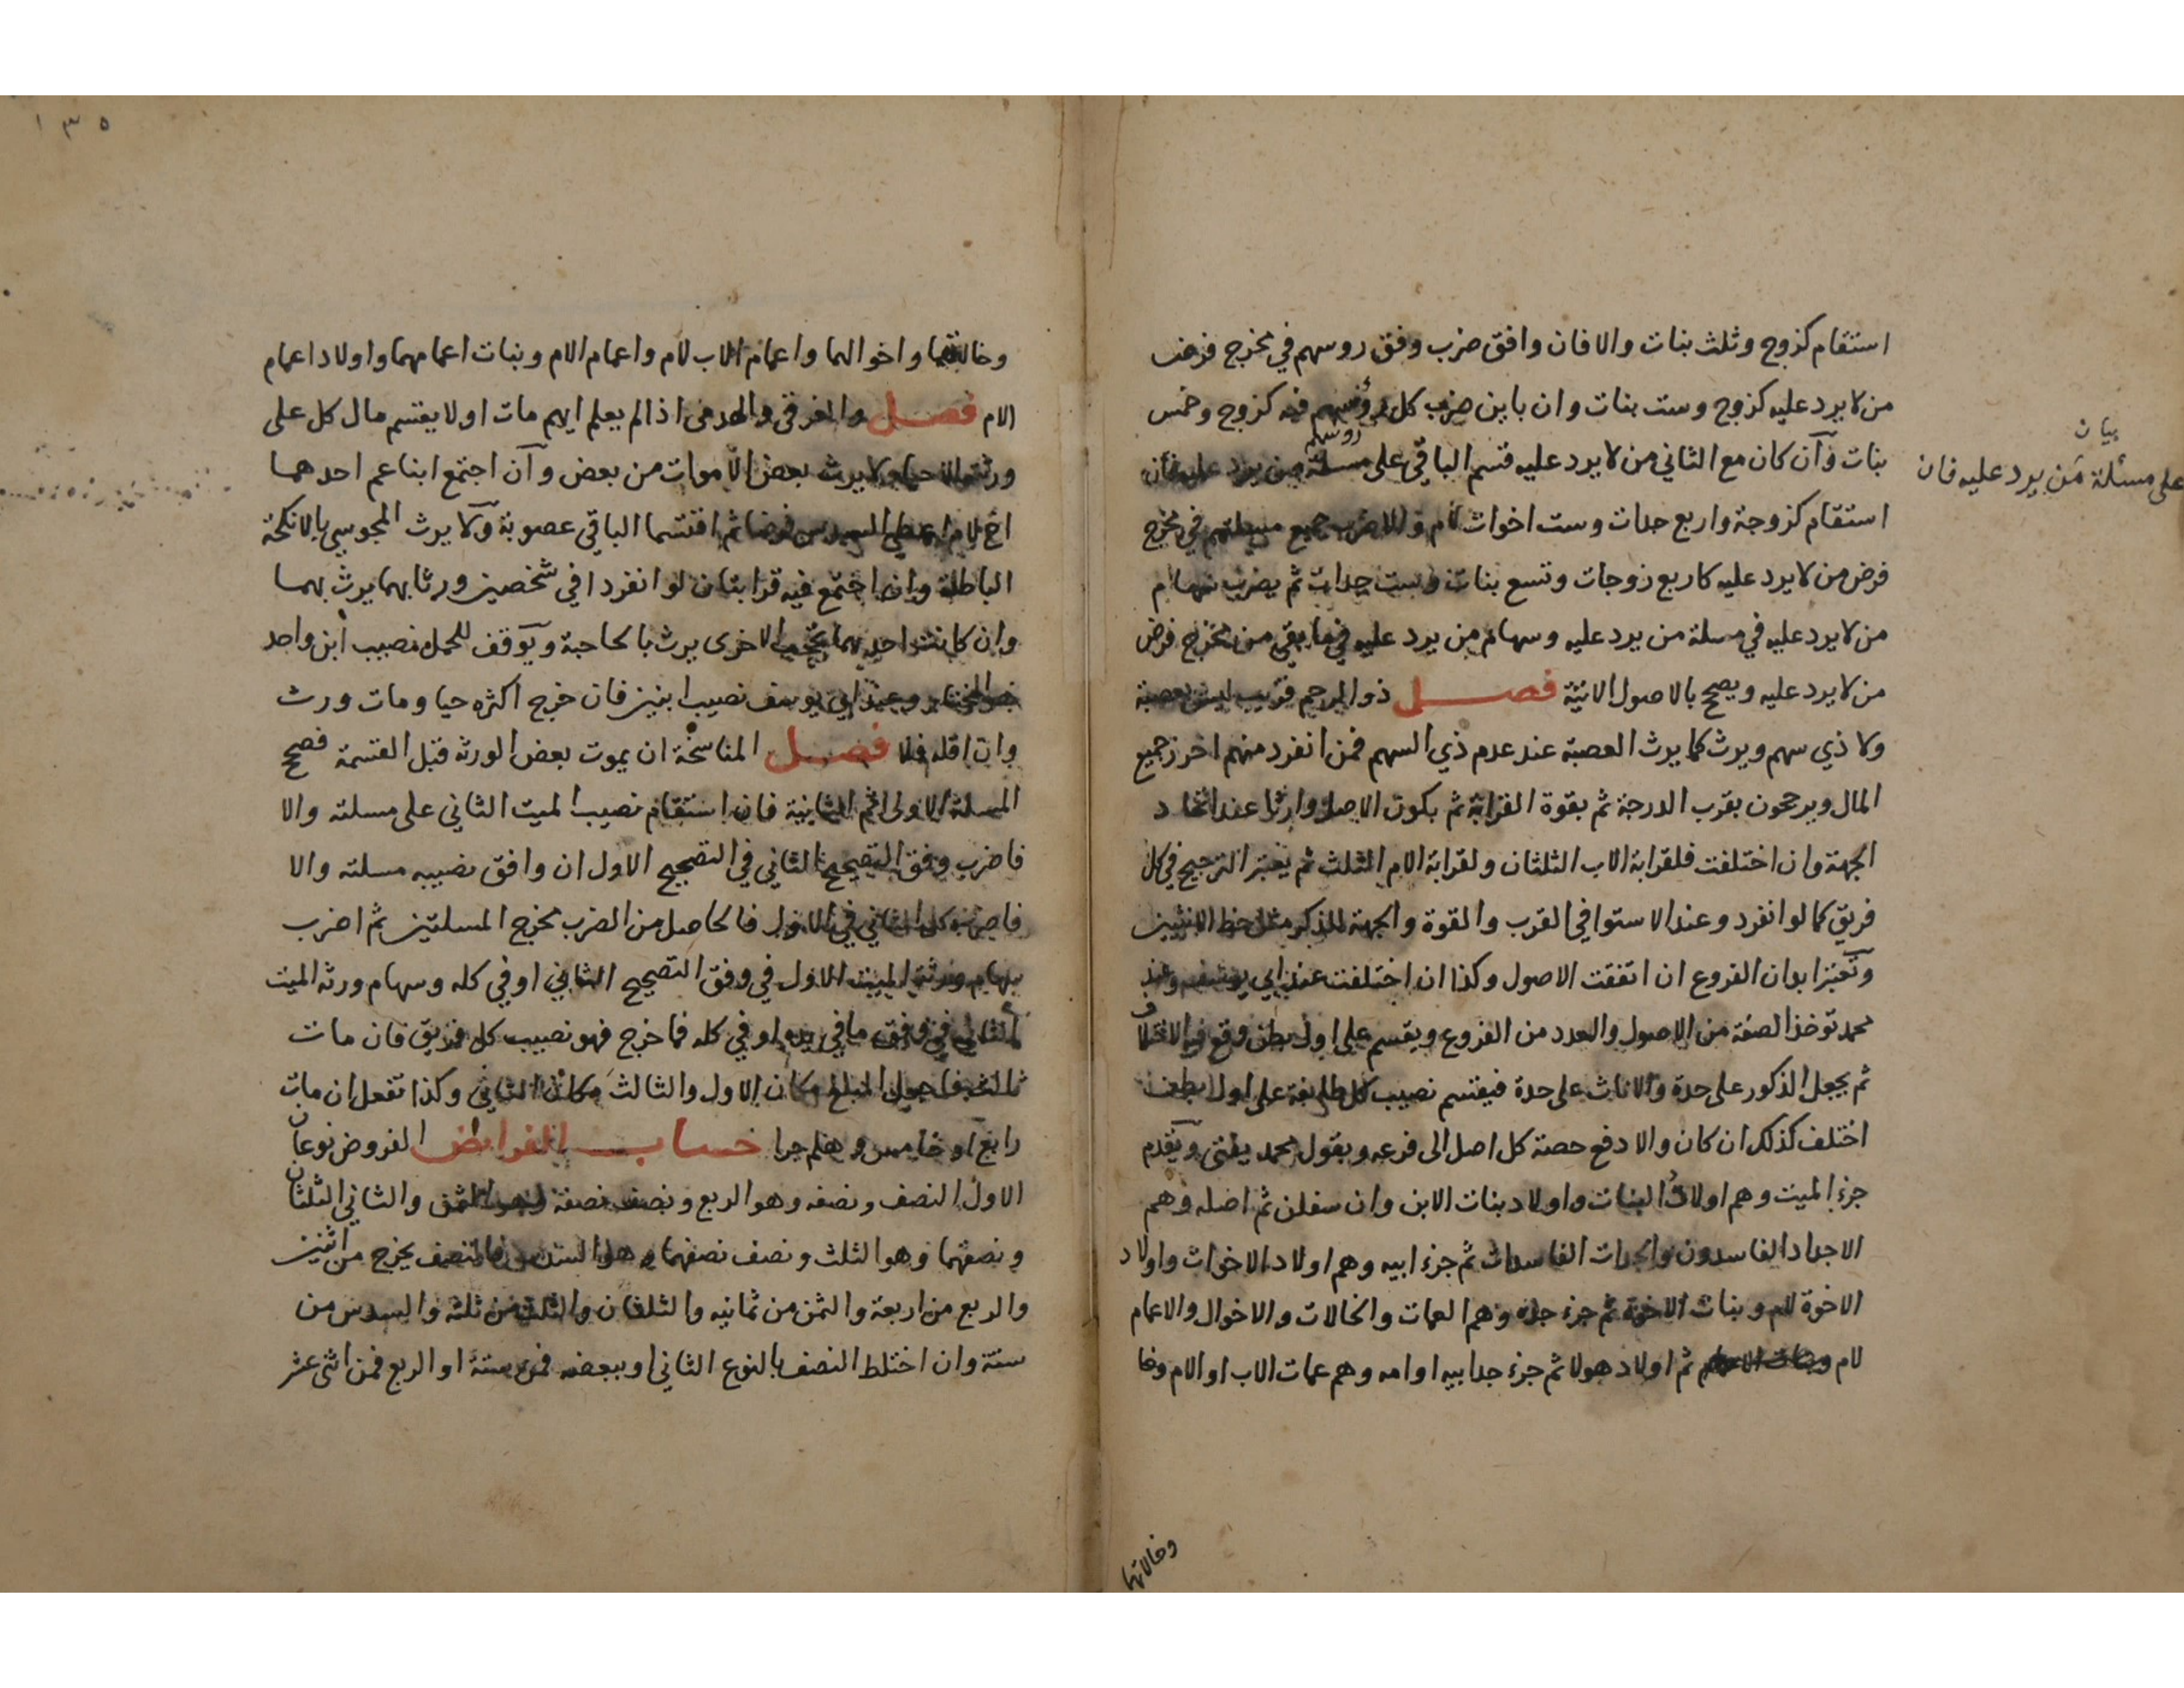 استقام كزوج وثلث بنات والا فان وافق ضرب وفق روسهم في مخرج فرض
من لا يرد عليه كزوج وست بنات وان باين ضرب كل رؤسهم فيه كزوج وخمس
بنات وآن كان مع الثاني من لا يرد عليه قسم الباقي على مسئلة من يرد عليه فان
روسهم
بيان
على مسئلة من يرد عليه فان
استقام كزوجة واربع جدات وست اخوات لام والا ضرب جميع مسئلتهم في مخرج
فرض من لا يرد عليه كاربع زوجات وتسع بنات وست جدات ثم يضرب سهام
من لا يرد عليه في مسلة من يرد عليه وسهام من يرد عليه فيما بقي من مخرج فرض
من لا يرد عليه ويصح بالاصول الاتية فصل ذو الرحم قريب ليس بعصبة
ولا ذي سهم ويرث كما يرث العصبة عند عدم ذي السهم فمن انفرد منهم احرز جميع
المال ويرجحون بقرب الدرجة ثم بقوة القرابة ثم بكون الاصل وارثا عند اتحاد
الجهة وان اختلفت فلقرابة الاب الثلثان ولقرابة الام الثلث ثم يعتبر الترجيح في كل
فريق كما لو انفرد وعند الاستوا في القرب والقوة والجهة للذكر مثل حظ الانثيين
وتعتبر ابدان الفروع ان اتفقت الاصول وكذا ان اختلفت عند ابي يوسف وعند
محمد توخذ الصفة من الاصول والعدد من الفروع ويقسم على اول بطن وقع فيه الاختلاف
ثم يجعل الذكور على حدة والاناث على حدة فيقسم نصيب كل طايفة على اول بطن
اختلف كذلك ان كان والا دفع حصة كل اصل الى فرعه وبقول محمد يفتى ويقدم
جزء الميت وهم اولاد البنات واولاد بنات الابن وان سفلن ثم اصله وهم
الاجداد الفاسدون والجدات الفاسدات ثم جزء ابيه وهم اولاد الاخوات واولاد
الاخوة لام وبنات الاخوة ثم جزء جده وهم العمات والخالات والاخوال والاعمام
لام وبنات الاعمام ثم اولاد هولا ثم جزء جد ابيه او امه وهم عمات الاب او الام وخا
وخالاتهما
١٣٥
وخالاتهما واخوالهما واعمام الاب لام واعمام الام وبنات اعمامهما واولاد اعمام
الام فصل والغرقى والهدمى اذا لم يعلم ايهم مات اولا يقسم مال كل على
ورثته الاحيا ولا يرث بعض الاموات من بعض وآن اجتمع ابنا عم احدهما
اخ لام اعطي السدس فرضا ثم اقتسما الباقي عصوبة ولا يرث المجوسي بالانكحة
الباطلة وان اجتمع فيه قرابتان لو انفردا في شخصين ورثا بهما يرث بهما
وان كانت احديهما تحجب الاخرى يرث بالحاجبة ويوقف للحمل نصيب ابن واحد
هو المختار وعند ابي يوسف نصيب ابنين فان خرج اكثره حيا ومات ورث
وان اقله فلا فصل المناسخة ان يموت بعض الورثه قبل القسمة فصحح
المسلة الاولى ثم الثانية فان استقام نصيب الميت الثاني على مسلته والا
فاضرب وفق التصحيح الثاني في التصحيح الاول ان وافق نصيبه مسلته والا
فاضرب كل الثاني في الاول فالحاصل من الضرب مخرج المسلتين ثم اضرب
سهام ورثة الميت الاول في وفق التصحيح الثاني او في كله وسهام ورثه الميت
الثاني في وفق ما في يده او في كله فما خرج فهو نصيب كل فريق فان مات
ثالث فاجعل المبلغ مكان الاول والثالث مكان الثاني وكذا تفعل ان مات
رابع او خامس وهلم جرا حساب الفرايض الفروض نوعان
الاول النصف ونصفه وهو الربع ونصف نصفه وهو الثمن والثاني الثلثان
ونصفهما وهو الثلث ونصف نصفهما وهو السدس فالنصف يخرج من اثنين
والربع من اربعة والثمن من ثمانيه والثلثان والثلث من ثلثه والسدس من
ستة وان اختلط النصف بالنوع الثاني او ببعضه فمن ستة او الربع فمن اثنى عشر